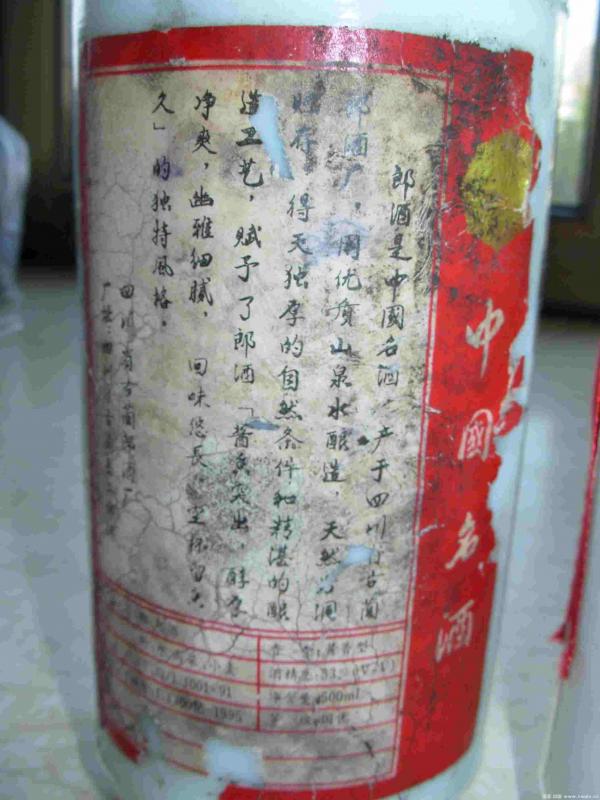 中國名酒
郎酒是中國名酒，产于四川省古蔺
郎酒厂，用优质山泉水酿造，天然洞
贮存，得天独厚的自然条件和精湛的酿
造工艺，赋予了郎酒「酱香突出，醇
净爽，幽雅细腻，回味悠长，空杯留
久」的独特风格。
四川省古蔺郎酒厂
厂址：四川省古蔺
香型：酱香型
酒精度：53%(V/V)
净含量：500ml
小麦
1001-91
1995